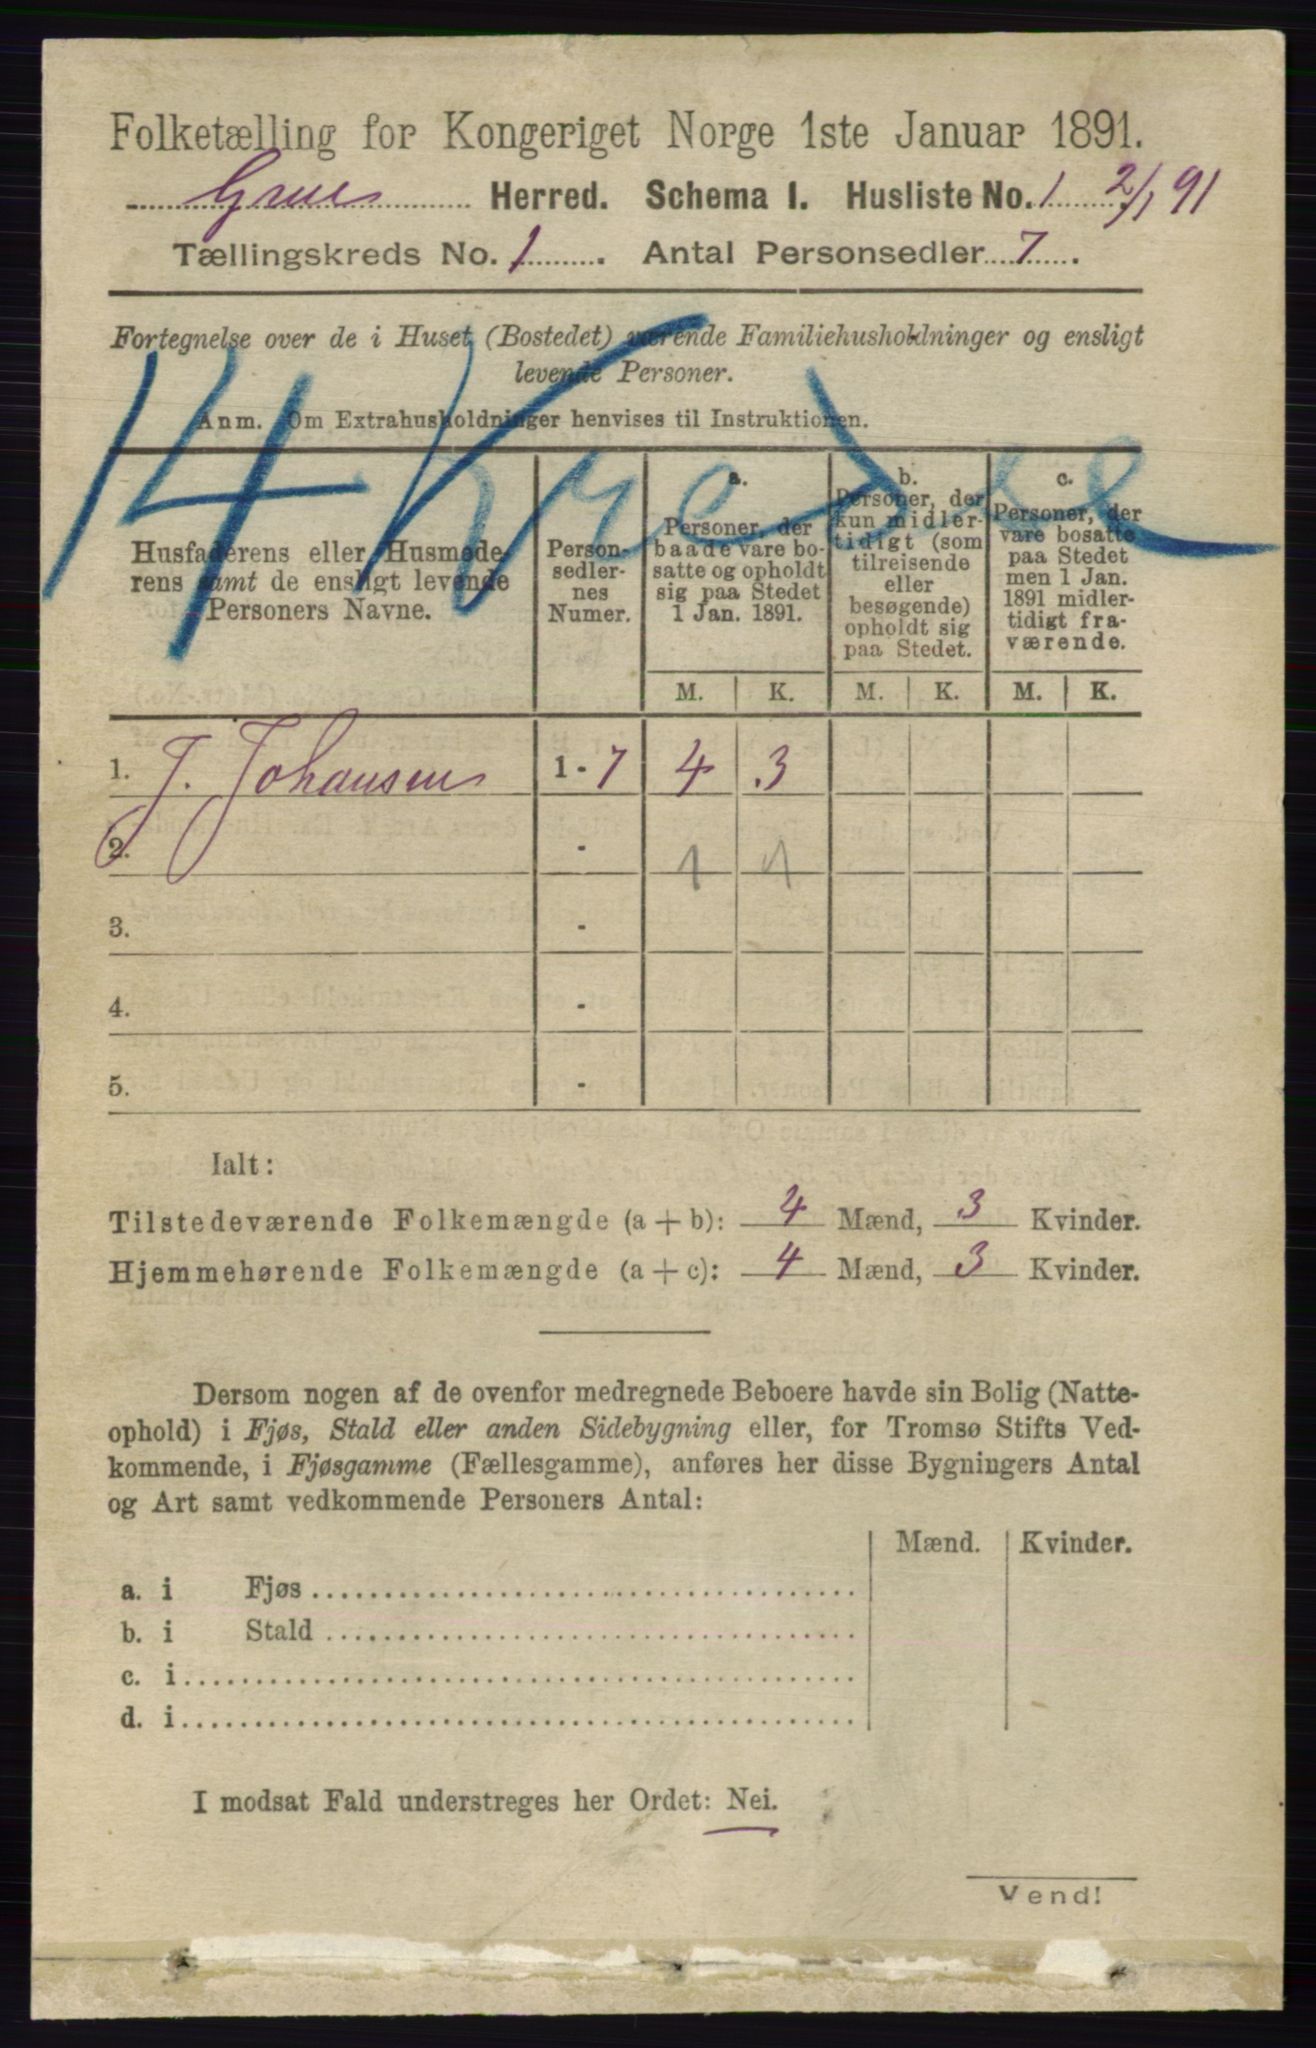 Folketælling for Kongeriget Norge 1ste Januar 1891.
Grue Herred. Schema I. Husliste No. 1 2/1 91
Tællingskreds No. 1. Antal Personsedler 7.
Fortegnelse over de i Huset (Bostedet) værende Familiehusholdninger og ensligt
levende Personer.
Anm. Om Extrahusholdninger henvises til Instruktionen.
14 Kredse
Husfaderens eller Husmode-
rens samt de ensligt levende
Personers Navne.
Person-
sedler-
nes
Numer.
a.
Personer, der
baade vare bo-
satte og opholdt
sig paa Stedet
1 Jan. 1891.
b.
Personer, der
kun midler-
tidigt (som
tilreisende
eller
besøgende)
opholdt sig
paa Stedet.
c.
Personer, der
vare bosatte
paa Stedet
men 1 Jan.
1891 midler-
tidigt fra-
værende.
M. K. M. K. M. K.
1. J. Johansen 1 - 7 4 3
2. -
3. -
4. -
5. -
Ialt:
Tilstedeværende Folkemængde (a + b): 4 Mænd, 3 Kvinder.
Hjemmehørende Folkemængde (a + c): 4 Mænd, 3 Kvinder.
Dersom nogen af de ovenfor medregnede Beboere havde sin Bolig (Natte-
ophold) i Fjøs, Stald eller anden Sidebygning eller, for Tromsø Stifts Ved-
kommende, i Fjøsgamme (Fællesgamme), anføres her disse Bygningers Antal
og Art samt vedkommende Personers Antal:
Mænd. Kvinder.
a. i Fjøs
b. i Stald
c. i
d. i
I modsat Fald understreges her Ordet: Nei.
Vend!